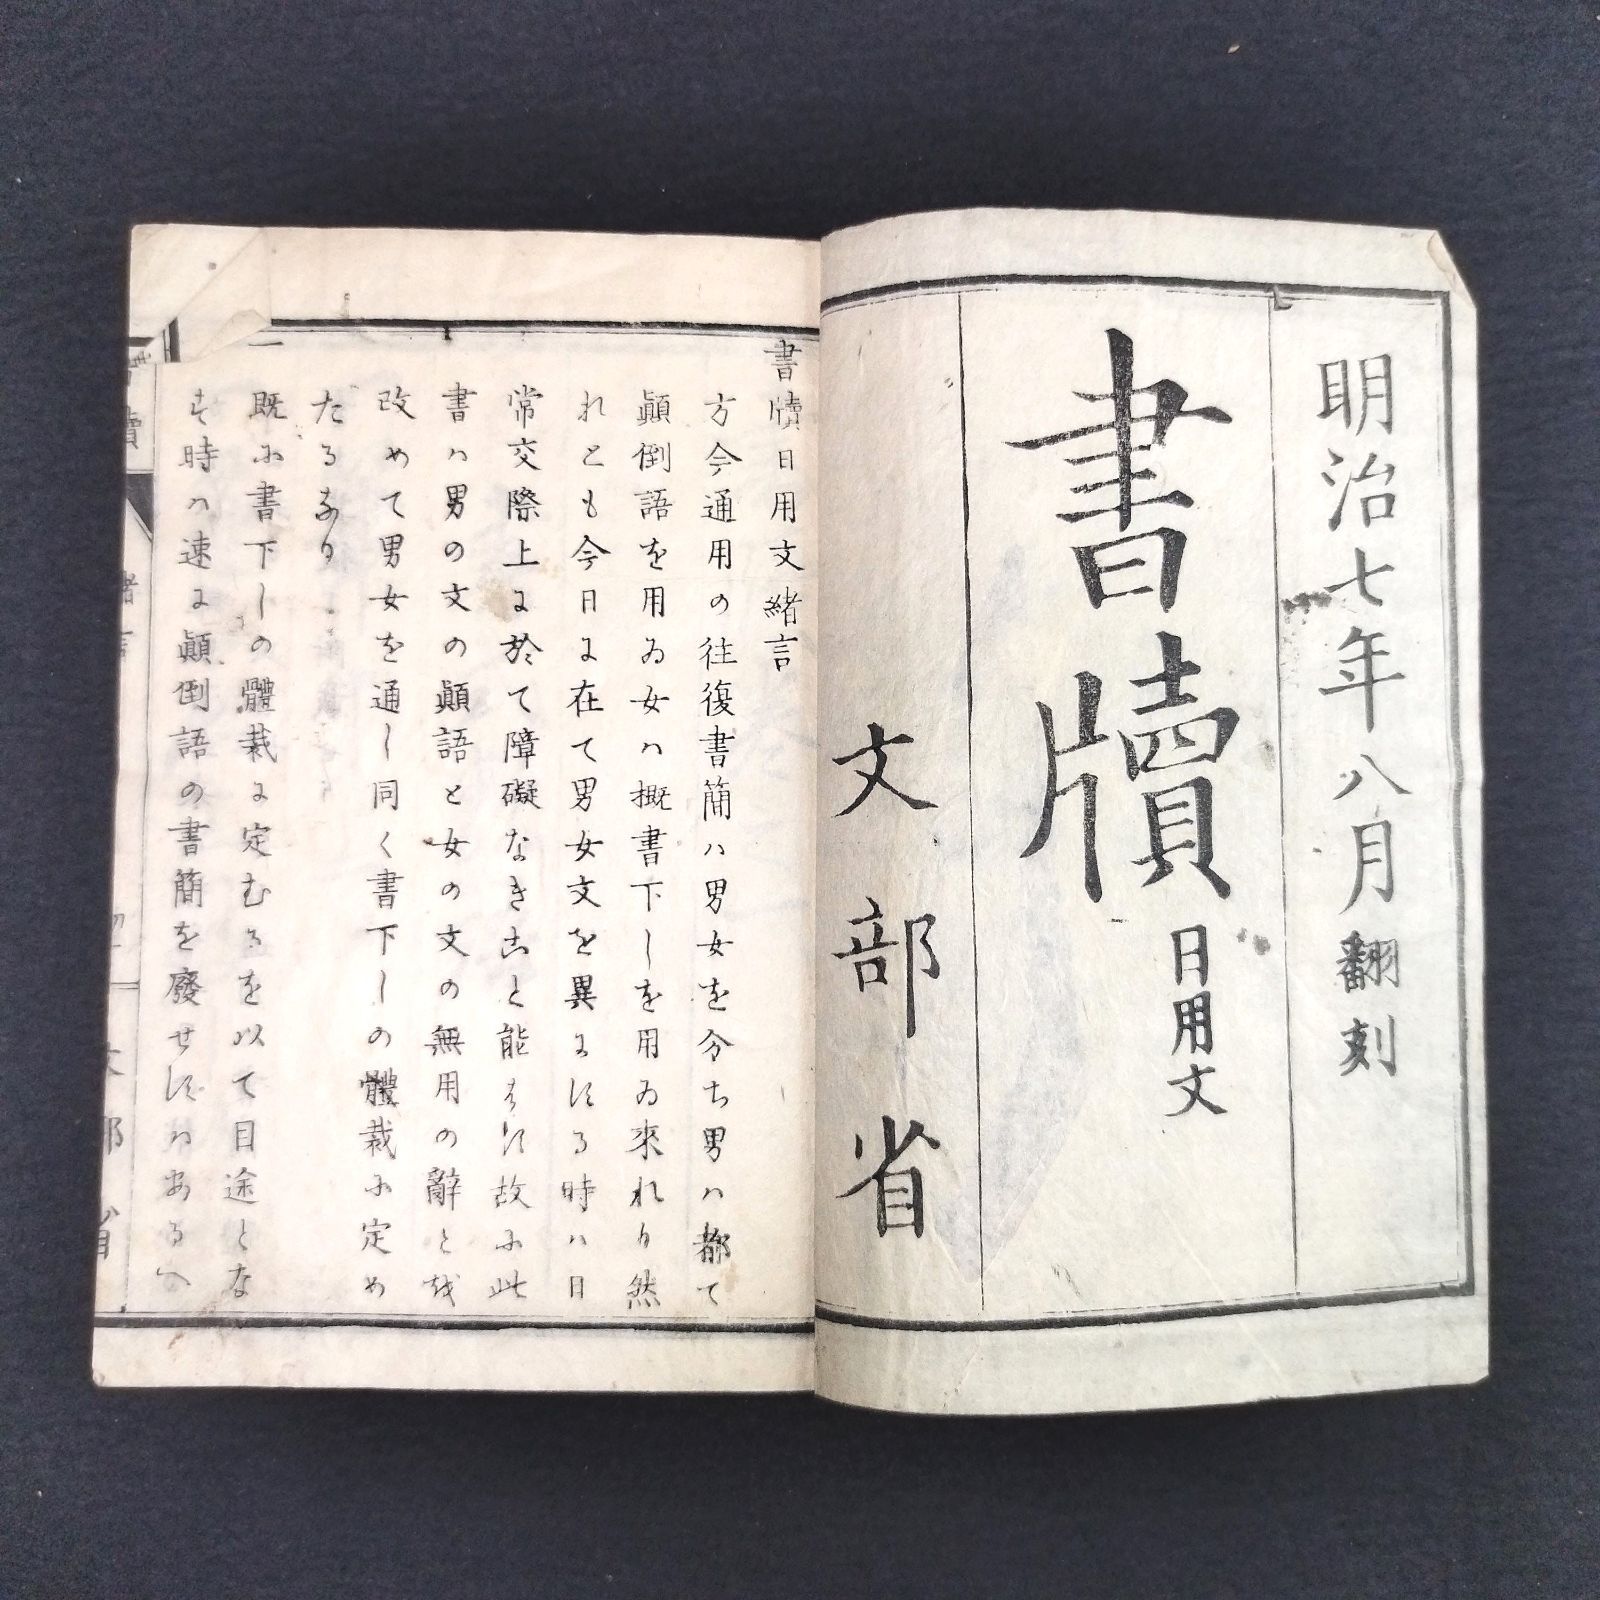 明治七年八月翻刻
書牘 日用文
文部省
書牘日用文緒言
方今通用の往復書簡ハ男女を分ち男ハ都て
顚倒語を用ゐ女ハ概書下しを用ゐ來れり然
れとも今日に在て男女文を異にする時ハ日
常交際上に於て障礙なきこと能はす故に此
書ハ男の文の顚語と女の文の無用の辭とを
改めて男女を通し同く書下しの體裁に定め
たるなり
既に書下しの體裁に定むるを以て目途とな
す時ハ速に顚倒語の書簡を廢せすハあるへ
牘
緒言
文部省